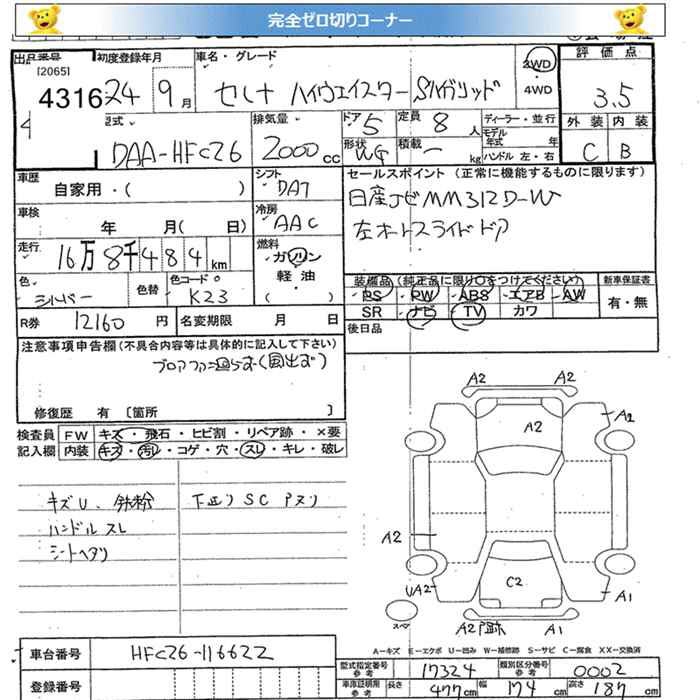 完全ゼロ切りコーナー
出品番号 初度登録年月 車名・グレード 2WD 評価点
[2065]
4316 24年 9月 セレナ ハイウェイスター Sハイブリッド ・4WD 3.5
型式 排気量 ドア 定員 ディーラー・並行 外装 内装
DAA-HFC26 2000cc 5 8人 モデル年式 年
形状 WG 積載 - kg ハンドル 左・右 C B
車歴 シフト セールスポイント (正常に機能するものに限ります)
自家用・( ) DA7 日産ナビ MM312D-W
車検 冷房 左オートスライドドア
年 月( 日) AAC
走行 燃料
16万8千484km ガソリン・軽油・( )
色 色替 色コード 装備品(純正品に限り○をつけてください) 新車保証書
シルバー K23 PS・PW・ABS・エアB・AW 有・無
SR ナビ TV カワ
R券 12160円 名変期限 月 日 後日品
注意事項申告欄(不具合内容等は具体的に記入して下さい)
ブロアファン廻らず(風出ず)
修復歴 有〔箇所 〕
検査員 FW キズ・飛石・ヒビ割・リペア跡・×要
記入欄 内装 キズ・汚レ・コゲ・穴・スレ・キレ・破レ
キズU、鉄粉 下廻りSCアヌリ
ハンドルスレ
シートヘタリ
A2 A2
A2 A2
A2
C2
UA2 A1
スペア A2 凹跡 A1
A=キズ E=エクボ U=凹み W=補修跡 S=サビ C=腐食 XX=交換済
車台番号 HFC26-116622
型式指定番号 参考 17324 類別区分番号 参考 0002
登録番号 車庫証明用 参考 長さ 477cm 幅 174cm 高さ 187cm